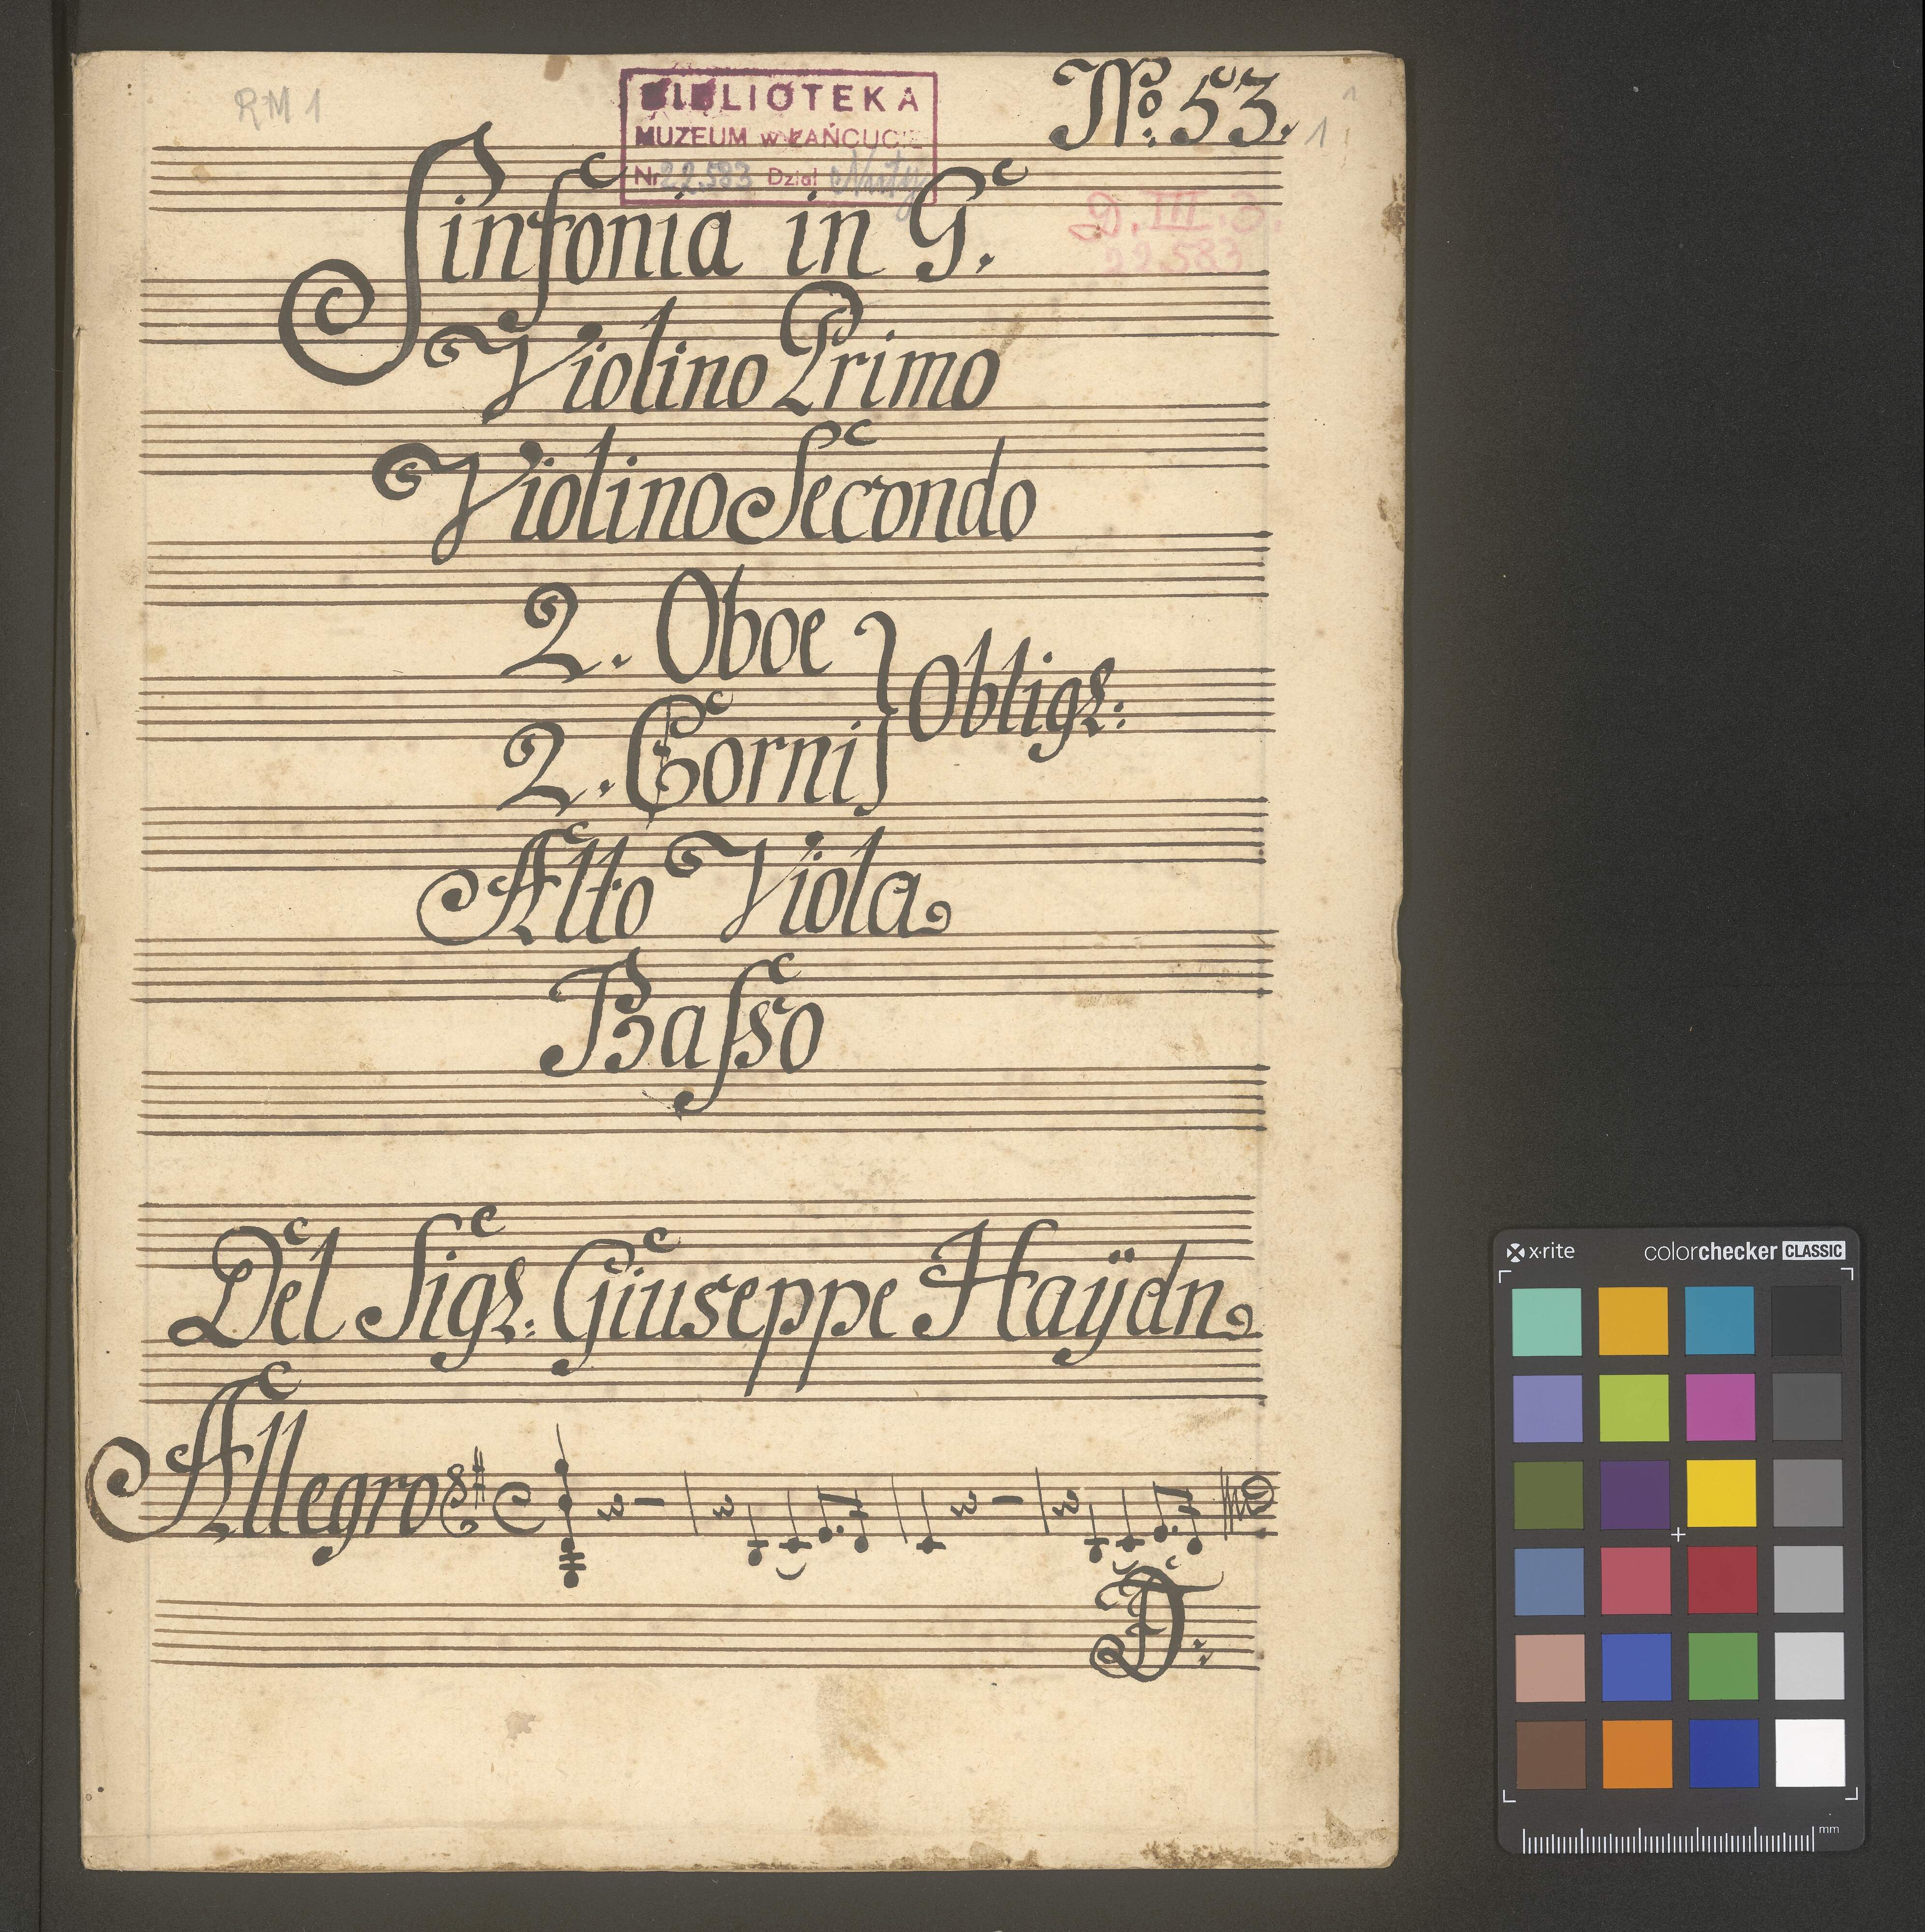 RM 1
BIBLIOTEKA
MUZEUM w ŁAŃCUCIE
Nr 22.583 Dział Nuty
No: 53.
1
D. III. 3.
22.583
Sinfonia in G.
Violino Primo
Violino Secondo
2. Oboe
2. Corni
Obligr:
Alto Viola
Basso
Del Sigr: Giuseppe Haÿdn
Allegro
D:
x·rite colorchecker CLASSIC
mm